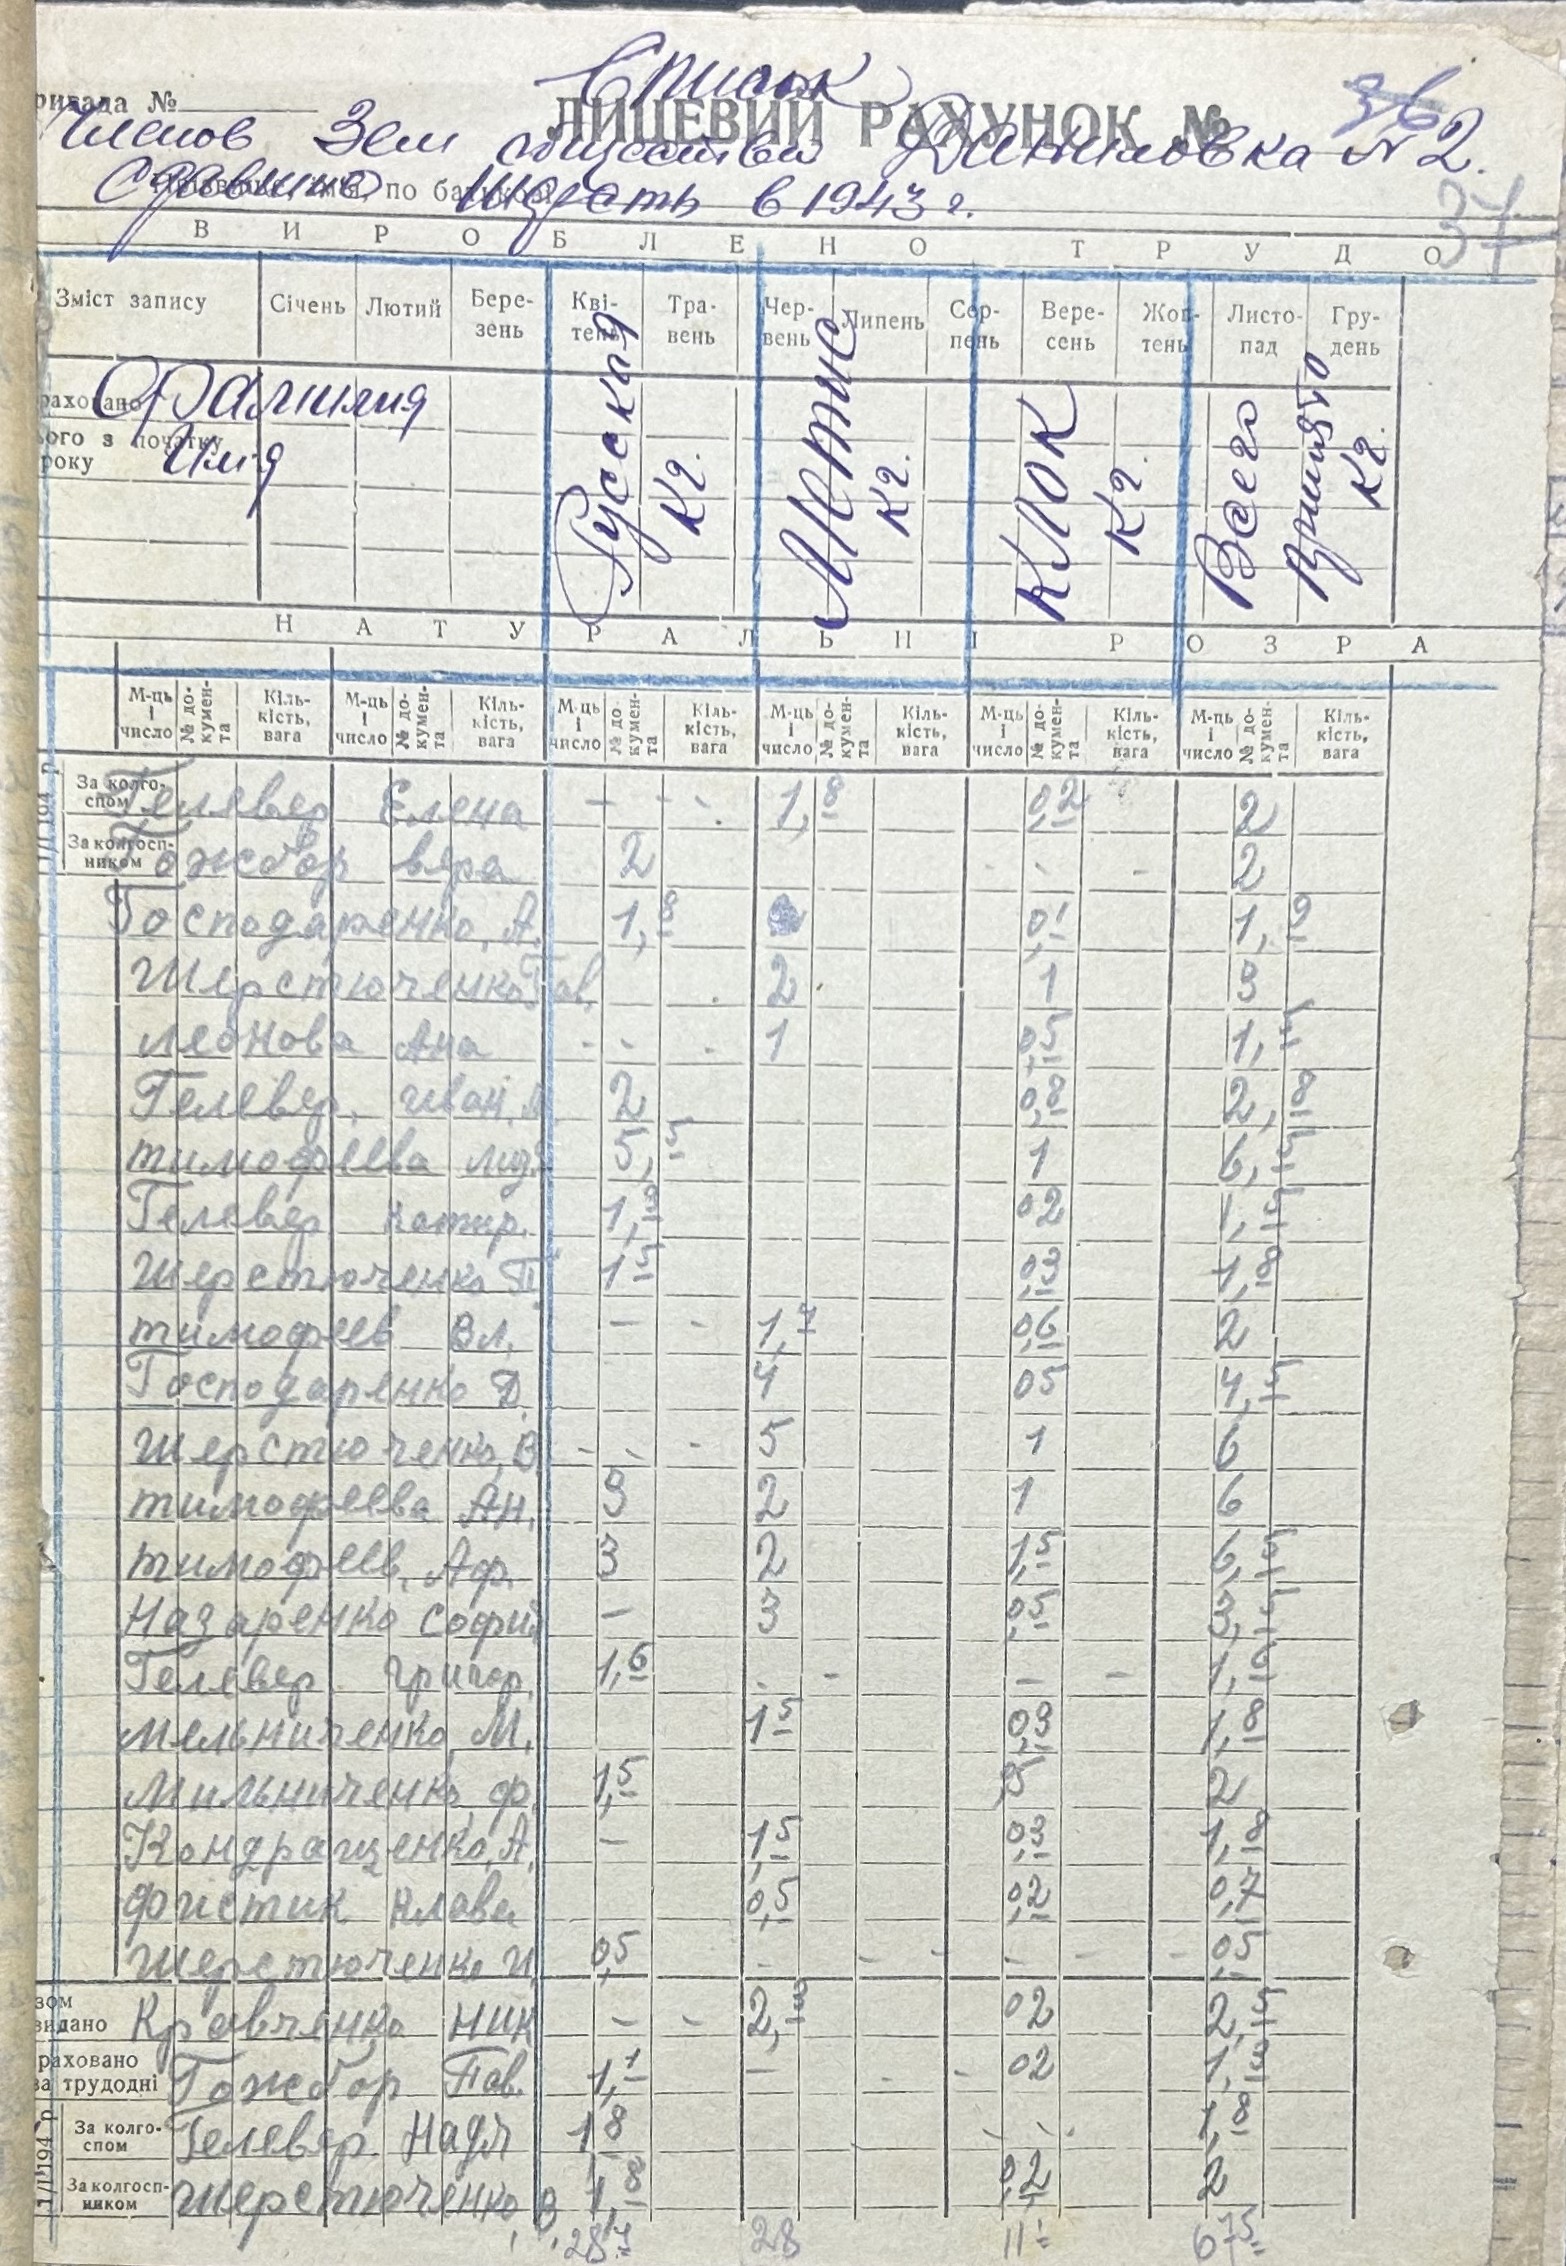 Список
ригада №
ЛИЦЕВИЙ РАХУНОК № 36
Членов Зем общества Даниловка № 2.
37
сдавшие шерсть в 1943 г.
по батькові
В И Р О Б Л Е Н О Т Р У Д О
Зміст запису Січень Лютий Бере-зень Кві-тень Тра-вень Чер-вень Липень Сер-пень Вере-сень Жов-тень Листо-пад Гру-день
раховано Фамилия
ього з початку року Имя
Русская кг. кг. КЛОК кг. Всего принято кг.
Н А Т У Р А Л Ь Н І Р О З Р А
М-ць і число № до-кумен-та Кіль-кість, вага М-ць і число № до-кумен-та Кіль-кість, вага М-ць і число № до-кумен-та Кіль-кість, вага М-ць і число № до-кумен-та Кіль-кість, вага М-ць і число № до-кумен-та Кіль-кість, вага М-ць і число № до-кумен-та Кіль-кість, вага
За колго-спом Гелевер Елена - - - 1,8 0,2 2
За колгосп-ником Гожбор вера 2 - - - 2
Господаренко, А. 1,8 0,1 1,9
Шерстюченко Гав. 2 1 3
леонова Ана - - - 1 0,5 1,5
Гелевер, иван 2 0,8 2,8
тимофеева 5,5 1 6,5
Гелевер Катер. 1,3 02 1,5
Шерстюченко П 1 5 0,3 1,8
тимофеев Вл. - - 1,4 0,6 2
Господаренко Д. 4 05 4,5
Шерстюченко, В - - - 5 1 6
тимофеева Ан. 3 2 1 6
тимофеев, Аф. 3 2 1,5 6,5
Назаренко Софи - 3 0,5 3,5
Гелевер Григор. 1,6 - - - - 1,6
Мельниченко М. 1 5 0,3 1,8
Мильниченко, ф. 1,5 5 2
Кондращенко, А. - 1,5 0,3 1,8
фистик Клава 0,5 0,2 0,7
Шерстюченко И. 0,5 - - - - - - 0,5
зом видано Кравченко Ник - - 2,3 02 2,5
раховано за трудодні Гожбор Пав. 1,1 - - - 02 1,3
За колго-спом Гелевер Надя 1 8 - - - 1,8
За колгосп-ником Шерстюченко В 1,8 0,2 2
28 11 67 5